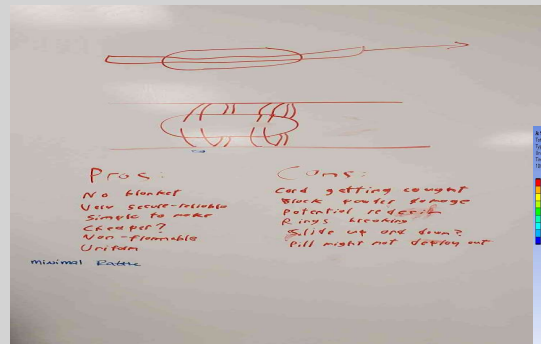 Pros:
No blanket
Very secure-reliable
Simple to make
Cheaper?
Non-flammable
Uniform
minimal Rattle
Cons:
Cord getting caught
Black powder damage
Potential redesign
Rings breaking
Slide up and down?
Pill might not deploy out